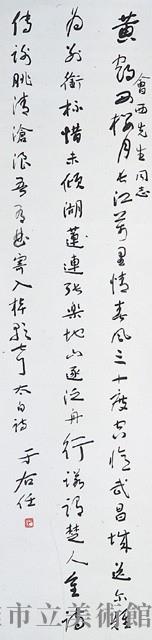 會西先生同志
黃鶴西樓月長江萬里情春風三十度空憶武昌城送爾難
為別銜杯惜未傾湖連張樂地山逐泛舟行諾謂楚人重詩
傳謝朓清滄浪吾有曲寄入棹歌聲 太白詩 于右任
市立美術館